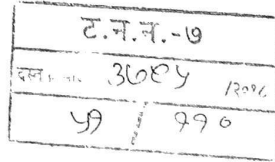 ट.न.न.-७
दस्त ३७९५ /२०१८
५१ / ११०